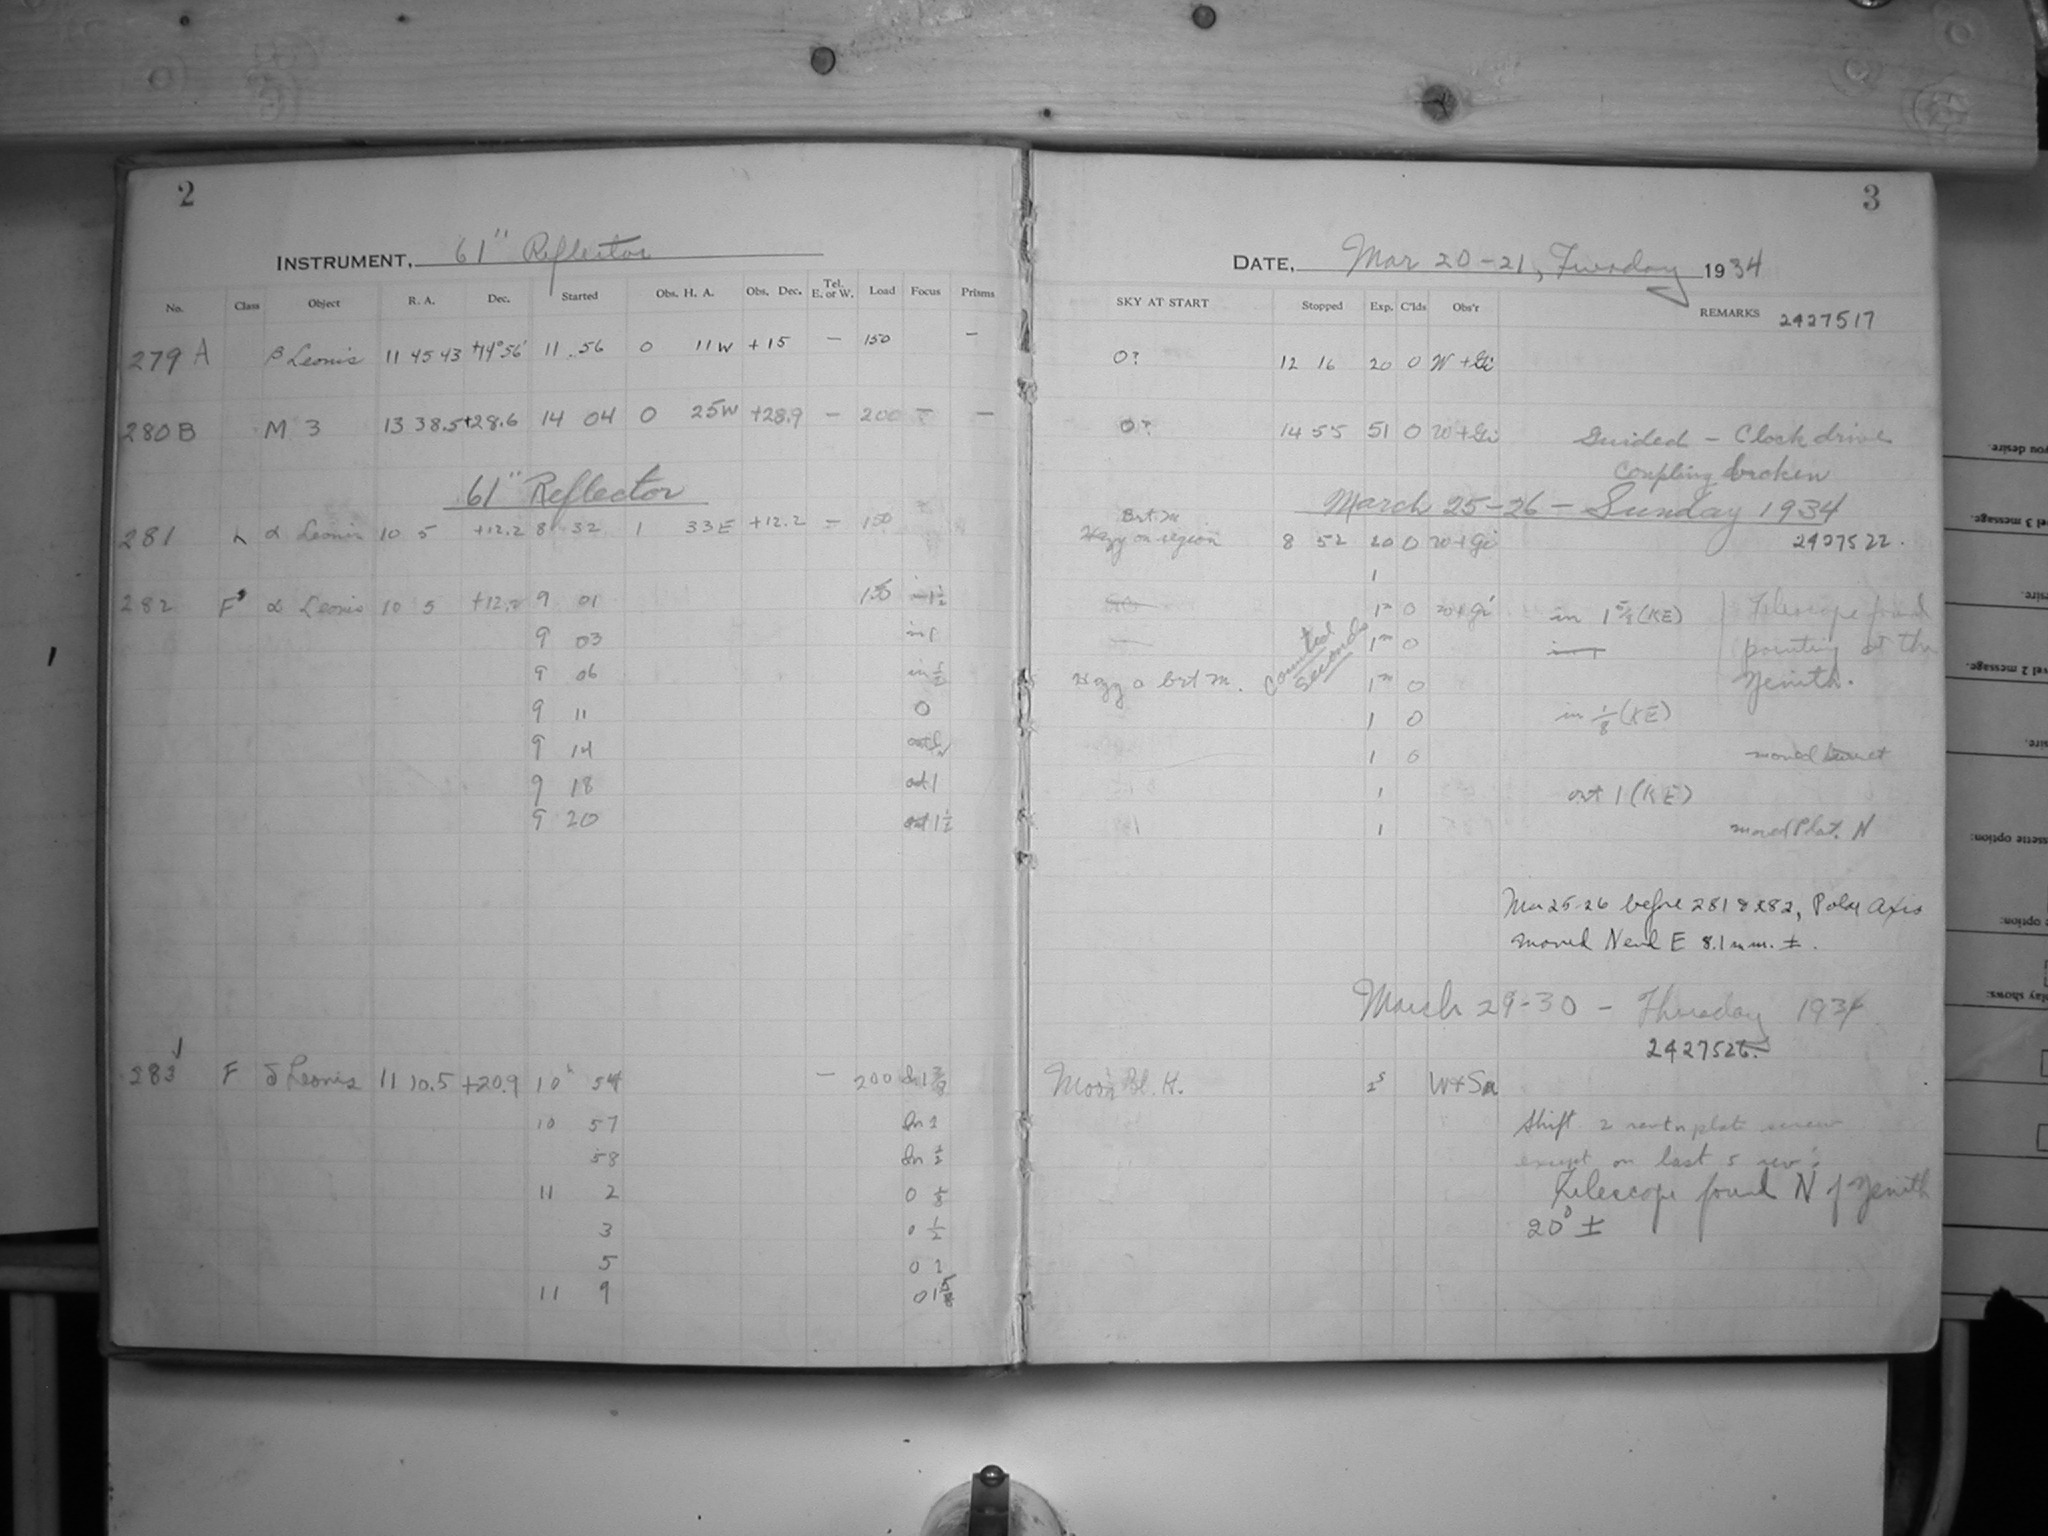 2
INSTRUMENT, 61" Reflector
No. Class Object R. A. Dec. Started Obs. H. A. Obs. Dec. Tel. E. or W. Load Focus Prisms
279 A β Leonis 11 45 43 +14°56' 11 56 0 11W +15 — 150 —
280 B M 3 13 38.5 +28.6 14 04 0 25W +28.9 — 200 — —
61" Reflector
281 L α Leonis 10 5 +12.2 8 32 1 33E +12.2 — 150
282 F α Leonis 10 5 +12.2 9 01 150 in 1½
9 03 in 1
9 06 in ½
9 11 0
9 14 out ½
9 18 out 1
9 20 out 1½
283 F δ Leonis 11 10.5 +20.9 10h 54 — 200
10 57 In 1
58 In ½
11 2
3 0 ½
5 0 1
11 9
3
DATE, Mar 20-21, Tuesday 1934
SKY AT START Stopped Exp. C'lds Obs'r REMARKS 2427517
0? 12 16 20 0 W+Gi
0? 14 55 51 0 W+Gi Guided — Clock drive
coupling broken
March 25-26 — Sunday 1934
Brt M
Hazy on region 8 52 20 0 W+Gi 2427522.
1
1m 0 W+Gi in 1⅝(KE) Telescope found
1m 0 pointing at the
Hazy 0 brt M. Counted seconds 1m 0 Zenith.
1 0 in ⅛(KE)
1 0 moved
1 out 1 (KE)
1 moved Plat. N
Mar 25-26 before 281 & 282, Polar Axis
moved N end E 8.1mm. ±.
March 29-30 — Thursday 1934
2427526.
Moon Bl. H. 2s W+Sa
Shift 2 rev on plate screw
except on last 5 rev's
Telescope found N of Zenith
20° ±
you desire.
vel 3 message.
sire.
vel 2 message.
sire.
ssette option:
option:
play shows: